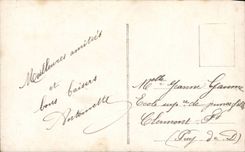 Meilleures amitiés
et
bons baisers
Antoinette
Melle Jeanne
Ecole sup re de jeunes filles
Clermont-Fd
(Puy de D)